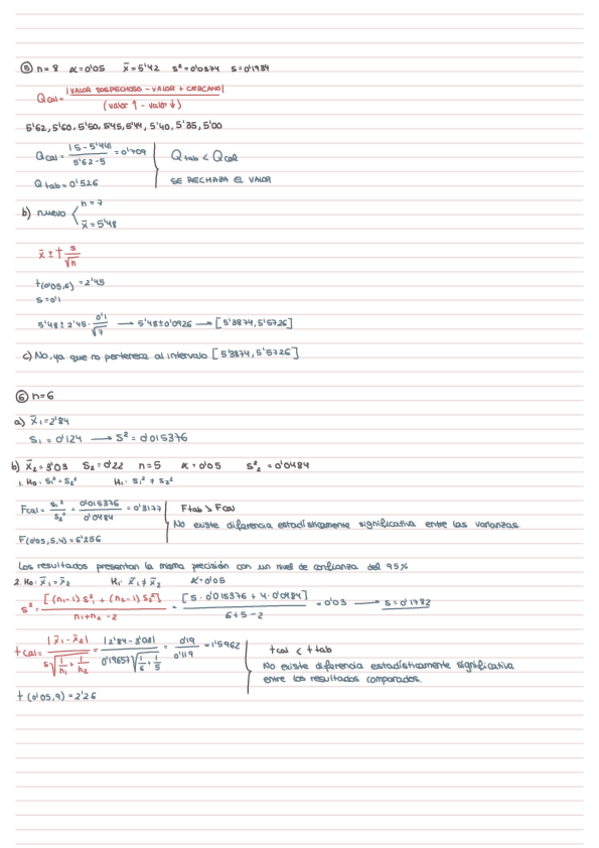 ⑤ n=8 α=0'05 x̄=5'42 s²=0'0374 s=0'1934
Qcal = |VALOR SOSPECHOSO - VALOR + CERCANO| / (valor ↑ - valor ↓)
5'62, 5'60, 5'50, 5'45, 5'44, 5'40, 5'35, 5'00
Qcal = |5-5'44| / 5'62-5 = 0'709 Qtab < Qcal
Qtab = 0'526 SE RECHAZA EL VALOR
b) nuevo n=7
x̄=5'48
x̄ ± t s/√n
t(0'05,6) = 2'45
s=0'1
5'48 ± 2'45 · 0'1/√7 → 5'48 ± 0'0926 → [5'3874, 5'5726]
c) No, ya que no pertenece al intervalo [5'3874, 5'5726]
⑥ n=6
a) x̄₁=2'84
S₁ = 0'124 → S² = 0'015376
b) x̄₂=3'03 S₂=0'22 n=5 α=0'05 S²₂=0'0484
1. H₀: S₁²=S₂² H₁: S₁² ≠ S₂²
Fcal = S₁²/S₂² = 0'015376/0'0484 = 0'3177 Ftab > Fcal
No existe diferencia estadísticamente significativa entre las varianzas
F(0'05,5,4)=6'256
Los resultados presentan la misma precisión con un nivel de confianza del 95%
2. H₀: x̄₁=x̄₂ H₁: x̄₁≠x̄₂ α=0'05
S² = [(n₁-1) S²₁ + (n₂-1) S₂²] / n₁+n₂-2 = [5·0'015376 + 4·0'0484] / 6+5-2 = 0'03 → S=0'1732
tcal = |x̄₁-x̄₂| / S√(1/n₁+1/n₂) = |2'84-3'03| / 0'19657√(1/6+1/5) = 0'19/0'119 = 1'5962 tcal < ttab
No existe diferencia estadísticamente significativa
entre los resultados comparados.
t(0'05,9)=2'26